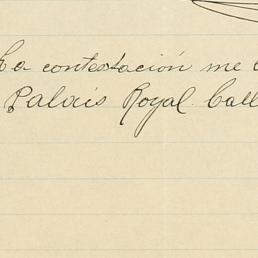 La contestación me
Palais Royal. Call